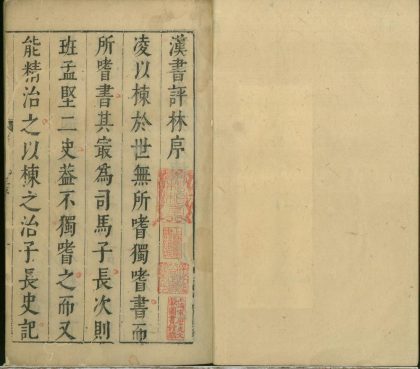 漢書評林序
凌以棟於世無所嗜獨嗜書而
所嗜書其最為司馬子長次則
班孟堅二史葢不獨嗜之而又
能精治之以棟之治子長史記